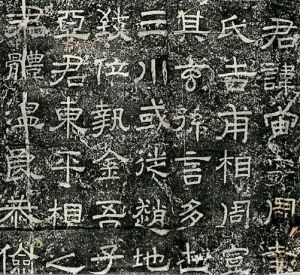 君諱宙字周南
氏吉甫相周宣
其玄孫言多世
三川或徙趙地
致位執金吾子
亞君東平相之
君體溫良恭儉